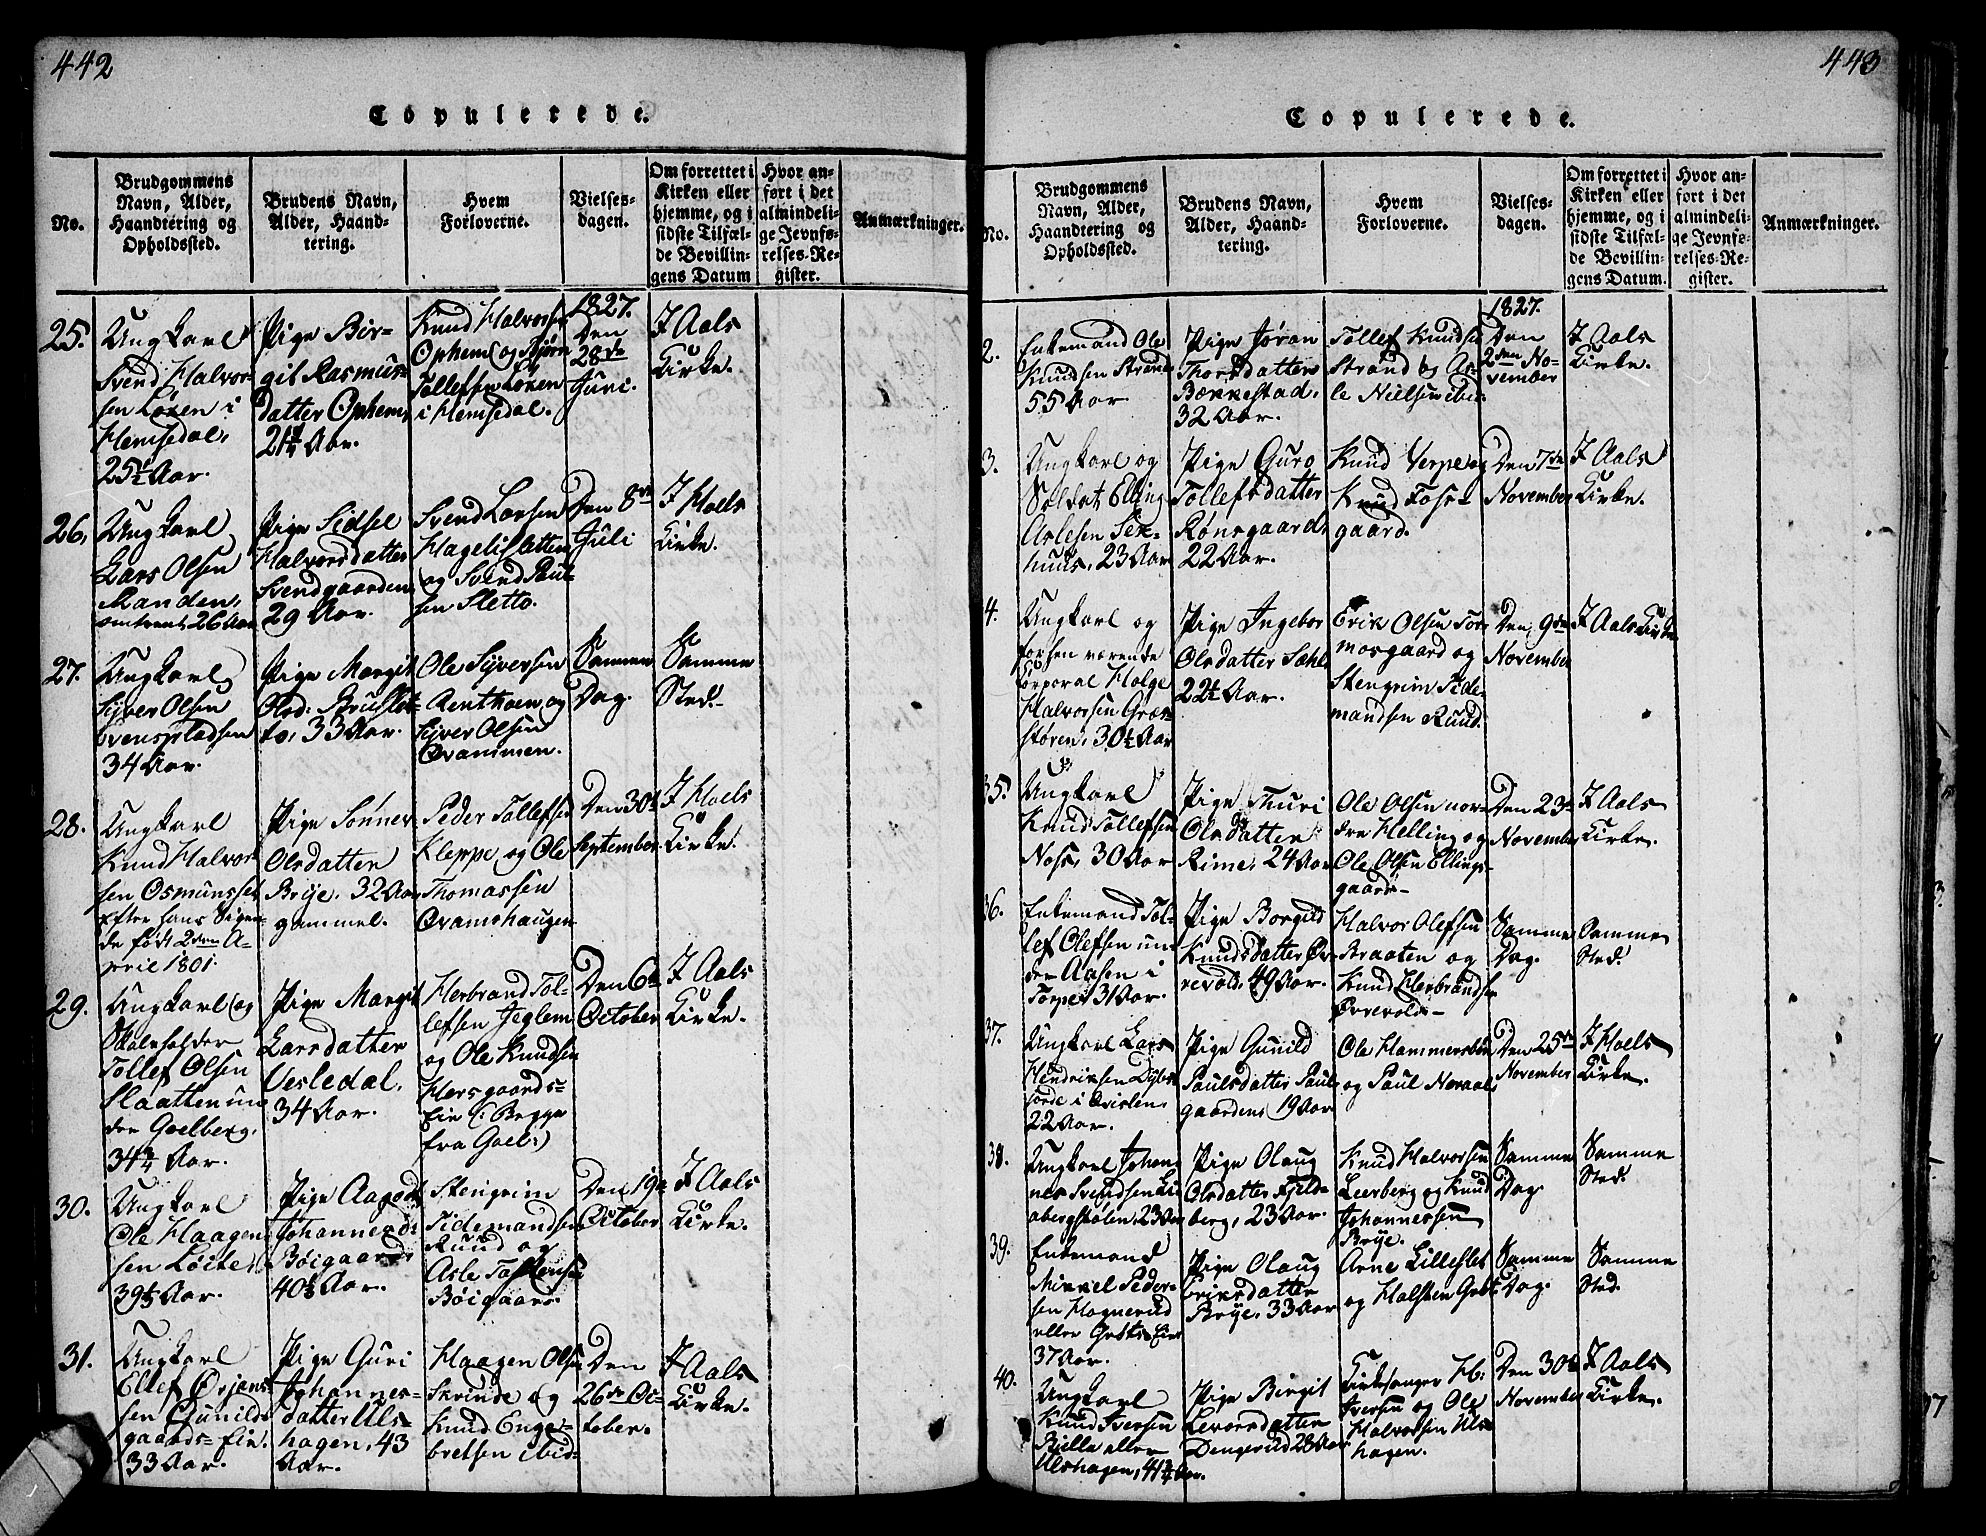 442
Copulerede.
No.
Brudgommens
Navn, Alder,
Haandtering og
Opholdssted.
Brudens Navn,
Alder, Haand-
tering.
Hvem
Forloverne.
Vielses-
dagen.
Om forrettet i
Kirken eller
hjemme, og i
sidste Tilfæl-
de Bevillin-
gens Datum
Hvor an-
ført i det
almindeli-
ge Jevnfø-
relses-Re-
gister.
Anmærkninger.
25.
Ungkarl
Svend Halvor-
sen Løken i
Hemsedal,
25½ Aar.
Pige Bir-
git Rasmus-
datter Ophem,
21¼ Aar.
Knud Halvorsen
Ophem og Bjørn
Tollefsen Løken
i Hemsedal.
1827.
Den
28de
Juni.
I Aals
Kirke.
26.
Ungkarl
Lars Olsen
Manden,
omtrent 26 Aar
Pige Sidsel
Halvorsdatter
Svendgaarden,
29 Aar.
Svend Larsen
Hagelisletten
og Svend Paul-
sen Sletto.
Den 8de
Juli
I Hoels
Kirke.
27.
Ungkarl
Siver Olsen
Evenspladsen
34 Aar.
Pige Margit
Olsd: Bruslet-
to, 33 Aar.
Ole Syversen
Renthoen og
Siver Olsen
Qvammen.
Samme
Dag.
Samme
Sted.
28.
Ungkarl
Knud Halvor-
sen Osmundset
Efter hans Sigen-
de født 2den A-
pril 1801.
Pige Sønnev
Olsdatter
Brye, 32 Aar
gammel.
Peder Tollefsen
Kleppe og Ole
Thomassen
Qvamshaugen
Den 30te
September
I Hoels
Kirke.
29.
Ungkarl og
Skoleholder
Tollef Olsen
Slaatten un-
der Goelberg,
34¾ Aar.
Pige Margit
Larsdatter
Vesledal,
34 Aar.
Herbrand Tol-
lefsen Jeglem
og Ole Knudsen
Hersgaards-
Eie (: Begge
fra Goel:)
Den 6te
October
I Aals
Kirke.
30.
Ungkarl
Ole Haagen-
sen Løite,
39½ Aar.
Pige Aagot
Johannesd:
Bøigaard,
40½ Aar.
Stengrim
Tidemandsen
Ruud og
Asle Torkensen
Bøigaard.
Den 19de
October
I Aals
Kirke.
31.
Ungkarl
Ellef Ørjans-
sen Gunilds-
gaards-Eie.
33 Aar.
Pige Guri
Johannes-
datter Uls-
hagen, 43
Aar.
Haagen Olsen
Skrinde og
Knud Enge-
bretsen ibid-
Den
26de Oc-
tober.
I Aals
Kirke.
443
Copulerede.
No.
Brudgommens
Navn, Alder,
Haandtering og
Opholdssted.
Brudens Navn,
Alder, Haand-
tering.
Hvem
Forloverne.
Vielses-
dagen.
Om forrettet i
Kirken eller
hjemme, og i
sidste Tilfæl-
de Bevillin-
gens Datum.
Hvor an-
ført i det
almindeli-
ge Jevnfø-
relses-Re-
gister.
Anmærkninger.
2.
Enkemand Ole
Knudsen Strand
55 Aar
Pige Jøran
Thorsdatter
Bækkestad.
32 Aar.
Tollef Knudsen
Strand og As-
le Nielsen ibid.
1827.
Den
2den No-
vember
I Aals
Kirke.
3.
Ungkarl og
Soldat Elling
Aslesen Sek-
huus, 23 Aar
Pige Guro
Tollefsdatter
Rønsgaard,
22 Aar.
Knud Verpe og
Knud Fos-
gaard.
Den 7de
November
I Aals
Kirke.
4.
Ungkarl og
forhen værende
Corporal Holge
Halvorsen Græs-
støren, 30½ Aar
Pige Ingebor
Olsdatter Sæhle
22½ Aar.
Erik Olsen Tor-
mosgaard og
Stengrim Tide-
mandsen Ruud.
Den 9de
November
I Aals Kirke
35.
Ungkarl
Knud Tollefsen
Nos, 30 Aar
Pige Thuri
Olsdatter
Rime, 24 Aar
Ole Olsen nor-
dre Helling og
Ole Olsen Ellings-
gaard-
Den 23de
November
I Aals
Kirke.
36.
Enkemand Tol-
lef Olefsen un-
der Aasen i
Torpe, 31 Aar.
Pige Borgild
Knudsdatter Øv-
revold, 49 Aar.
Halvor Olefsen
Braaten og
Knud Herbrandsen
Øvrevold-
Samme
Dag.
Samme
Sted.
37.
Ungkarl Lars
Hendriksen
22 Aar.
Pige Gunild
Paulsdatter Paul-
gaarden, 19 Aar
Ole Hammersbøn
og Paul Noraal
Den 25de
November
I Hoels
Kirke.
38.
Ungkarl Johan-
nes Svendsen Li-
abergstølen, 23 Aar
Pige Olaug
Olsdatter Fjeld-
berg, 23 Aar.
Knud Halvorsen
Leerberg og Knud
Johannessen
Brye.
Samme
Dag.
Samme
Sted.
39.
Enkemand
Mikkel Peder-
sen Hognerud
eller Grøts Eie
37 Aar.
Pige Olaug
Eriksdatter
Brye, 33 Aar
Arne Lilleslet
og Halsten Grøt
Samme
Dag.
Samme
Sted.
40.
Ungkarl
Knud Iversen
Bielle eller
Ulshagen, 41¾ Aar.
Pige Birgit
Levorsdatter
Dengerud 28 Aar
Kirkesanger H:
Iversen og Ole
Halvorsen Uls-
hagen.
Den 30te
November
I Aals
Kirke.